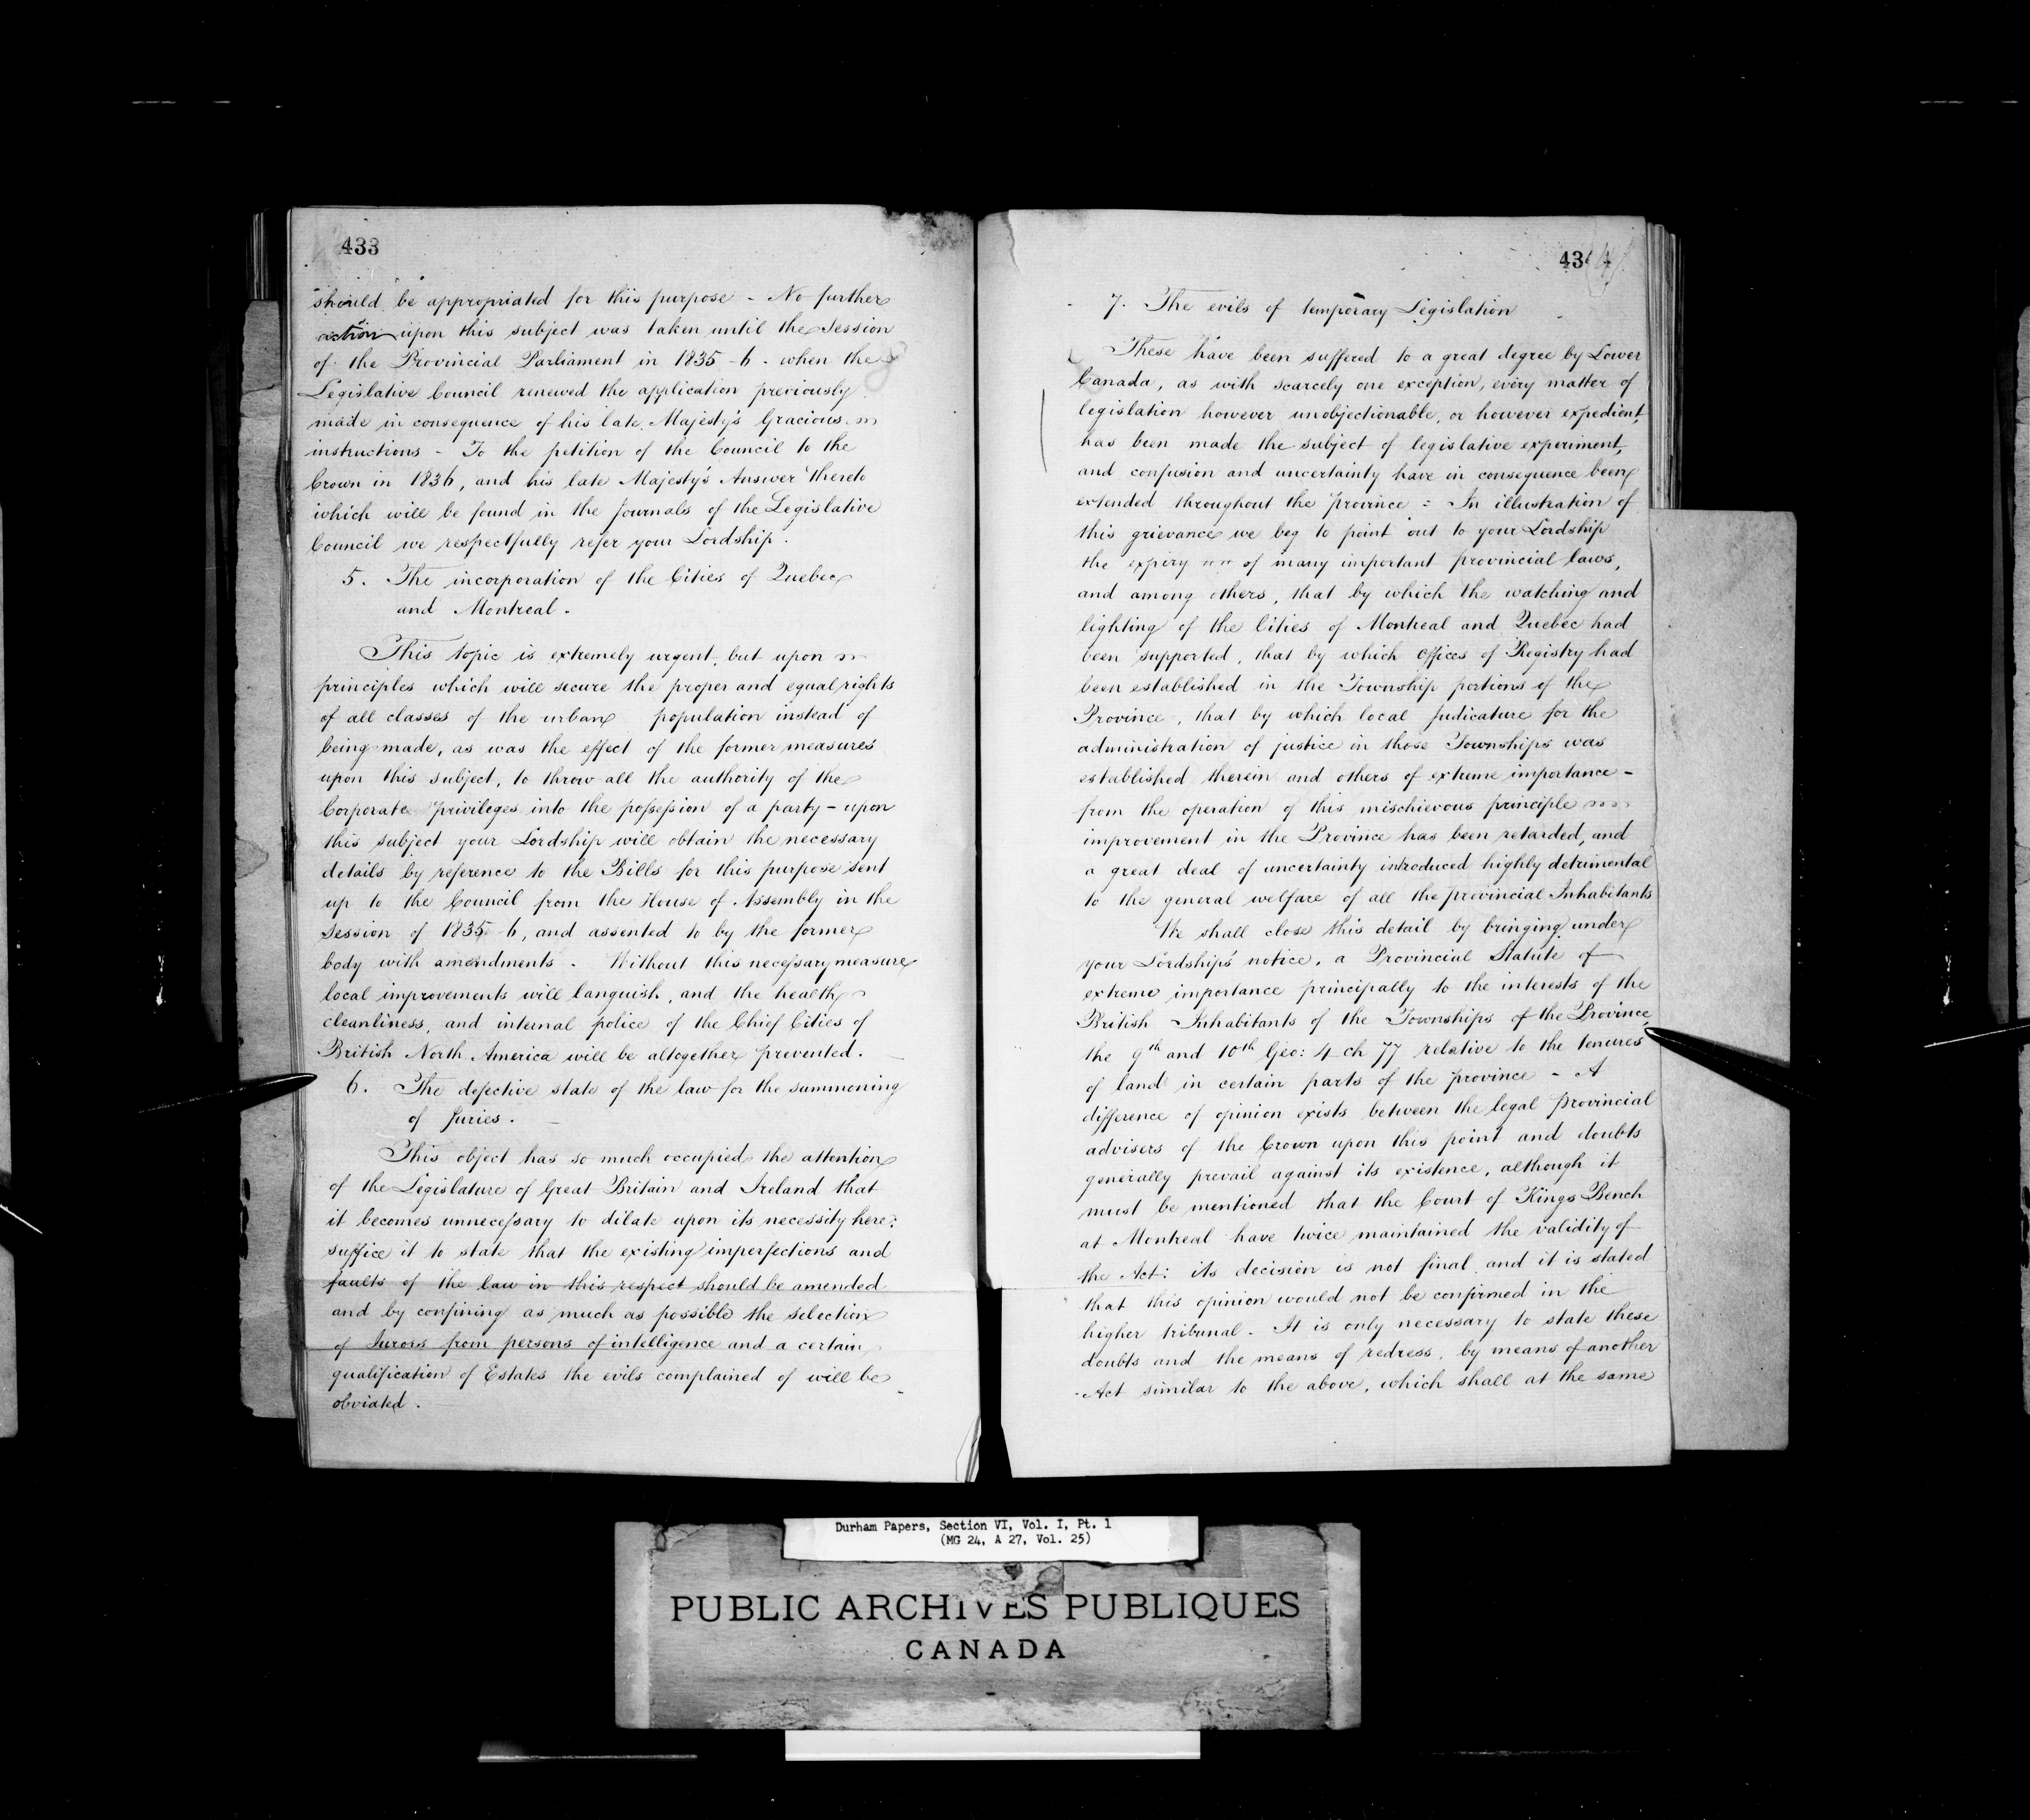 433
should be appropriated for this purpose - No further
action upon this subject was taken until the Session
of the Provincial Parliament in 1835-6. when the
Legislative Council renewed the application previously
made in consequence of his late Majesty's Gracious
instructions - To the petition of the Council to the
Crown in 1836, and his late Majesty's Answer thereto
which will be found in the Journals of the Legislative
Council we respectfully refer your Lordship.
5. The incorporation of the Cities of Quebec
and Montreal.
This topic is extremely urgent, but upon
principles which will secure the proper and equal rights
of all classes of the urban population instead of
being made, as was the effect of the former measures
upon this subject, to throw all the authority of the
Corporate privileges into the possession of a party - upon
this subject your Lordship will obtain the necessary
details by reference to the Bills for this purpose sent
up to the Council from the House of Assembly in the
Session of 1835-6, and assented to by the former
body with amendments. Without this necessary measure
local improvements will languish, and the health,
cleanliness, and internal police of the Chief Cities of
British North America will be altogether prevented.
6. The defective state of the law for the summoning
of Juries.
This object has so much occupied the attention
of the Legislature of Great Britain and Ireland that
it becomes unnecessary to dilate upon its necessity here:
suffice it to state that the existing imperfections and
faults of the law in this respect should be amended
and by confining as much as possible the selection
of Jurors from persons of intelligence and a certain
qualification of Estates the evils complained of will be
obviated.
434
7. The evils of temporary Legislation
These have been suffered to a great degree by Lower
Canada, as with scarcely one exception, every matter of
legislation however unobjectionable, or however expedient,
has been made the subject of legislative experiment,
and confusion and uncertainty have in consequence been
extended throughout the province : In illustration of
this grievance we beg to point out to your Lordship
the expiry of many important provincial laws,
and among others, that by which the watching and
lighting of the Cities of Montreal and Quebec had
been supported, that by which offices of Registry had
been established in the Township portions of the
Province, that by which local Judicature for the
administration of justice in those Townships was
established therein and others of extreme importance -
from the operation of this mischievous principle
improvement in the Province has been retarded, and
a great deal of uncertainty introduced highly detrimental
to the general welfare of all the provincial Inhabitants
We shall close this detail by bringing under
your Lordship's notice, a Provincial Statute of
extreme importance principally to the interests of the
British Inhabitants of the Townships of the Province,
the 9th and 10th Geo: 4 ch 77 relative to the tenures
of land in certain parts of the province - A
difference of opinion exists between the legal provincial
advisers of the Crown upon this point and doubts
generally prevail against its existence, although it
must be mentioned that the Court of Kings Bench
at Montreal have twice maintained the validity of
the Act: its decision is not final and it is stated
that this opinion would not be confirmed in the
higher tribunal. It is only necessary to state these
doubts and the means of redress, by means of another
Act similar to the above, which shall at the same
Durham Papers, Section VI, Vol. I, Pt. 1
(MG 24, A 27, Vol. 25)
PUBLIC ARCHIVES PUBLIQUES
CANADA